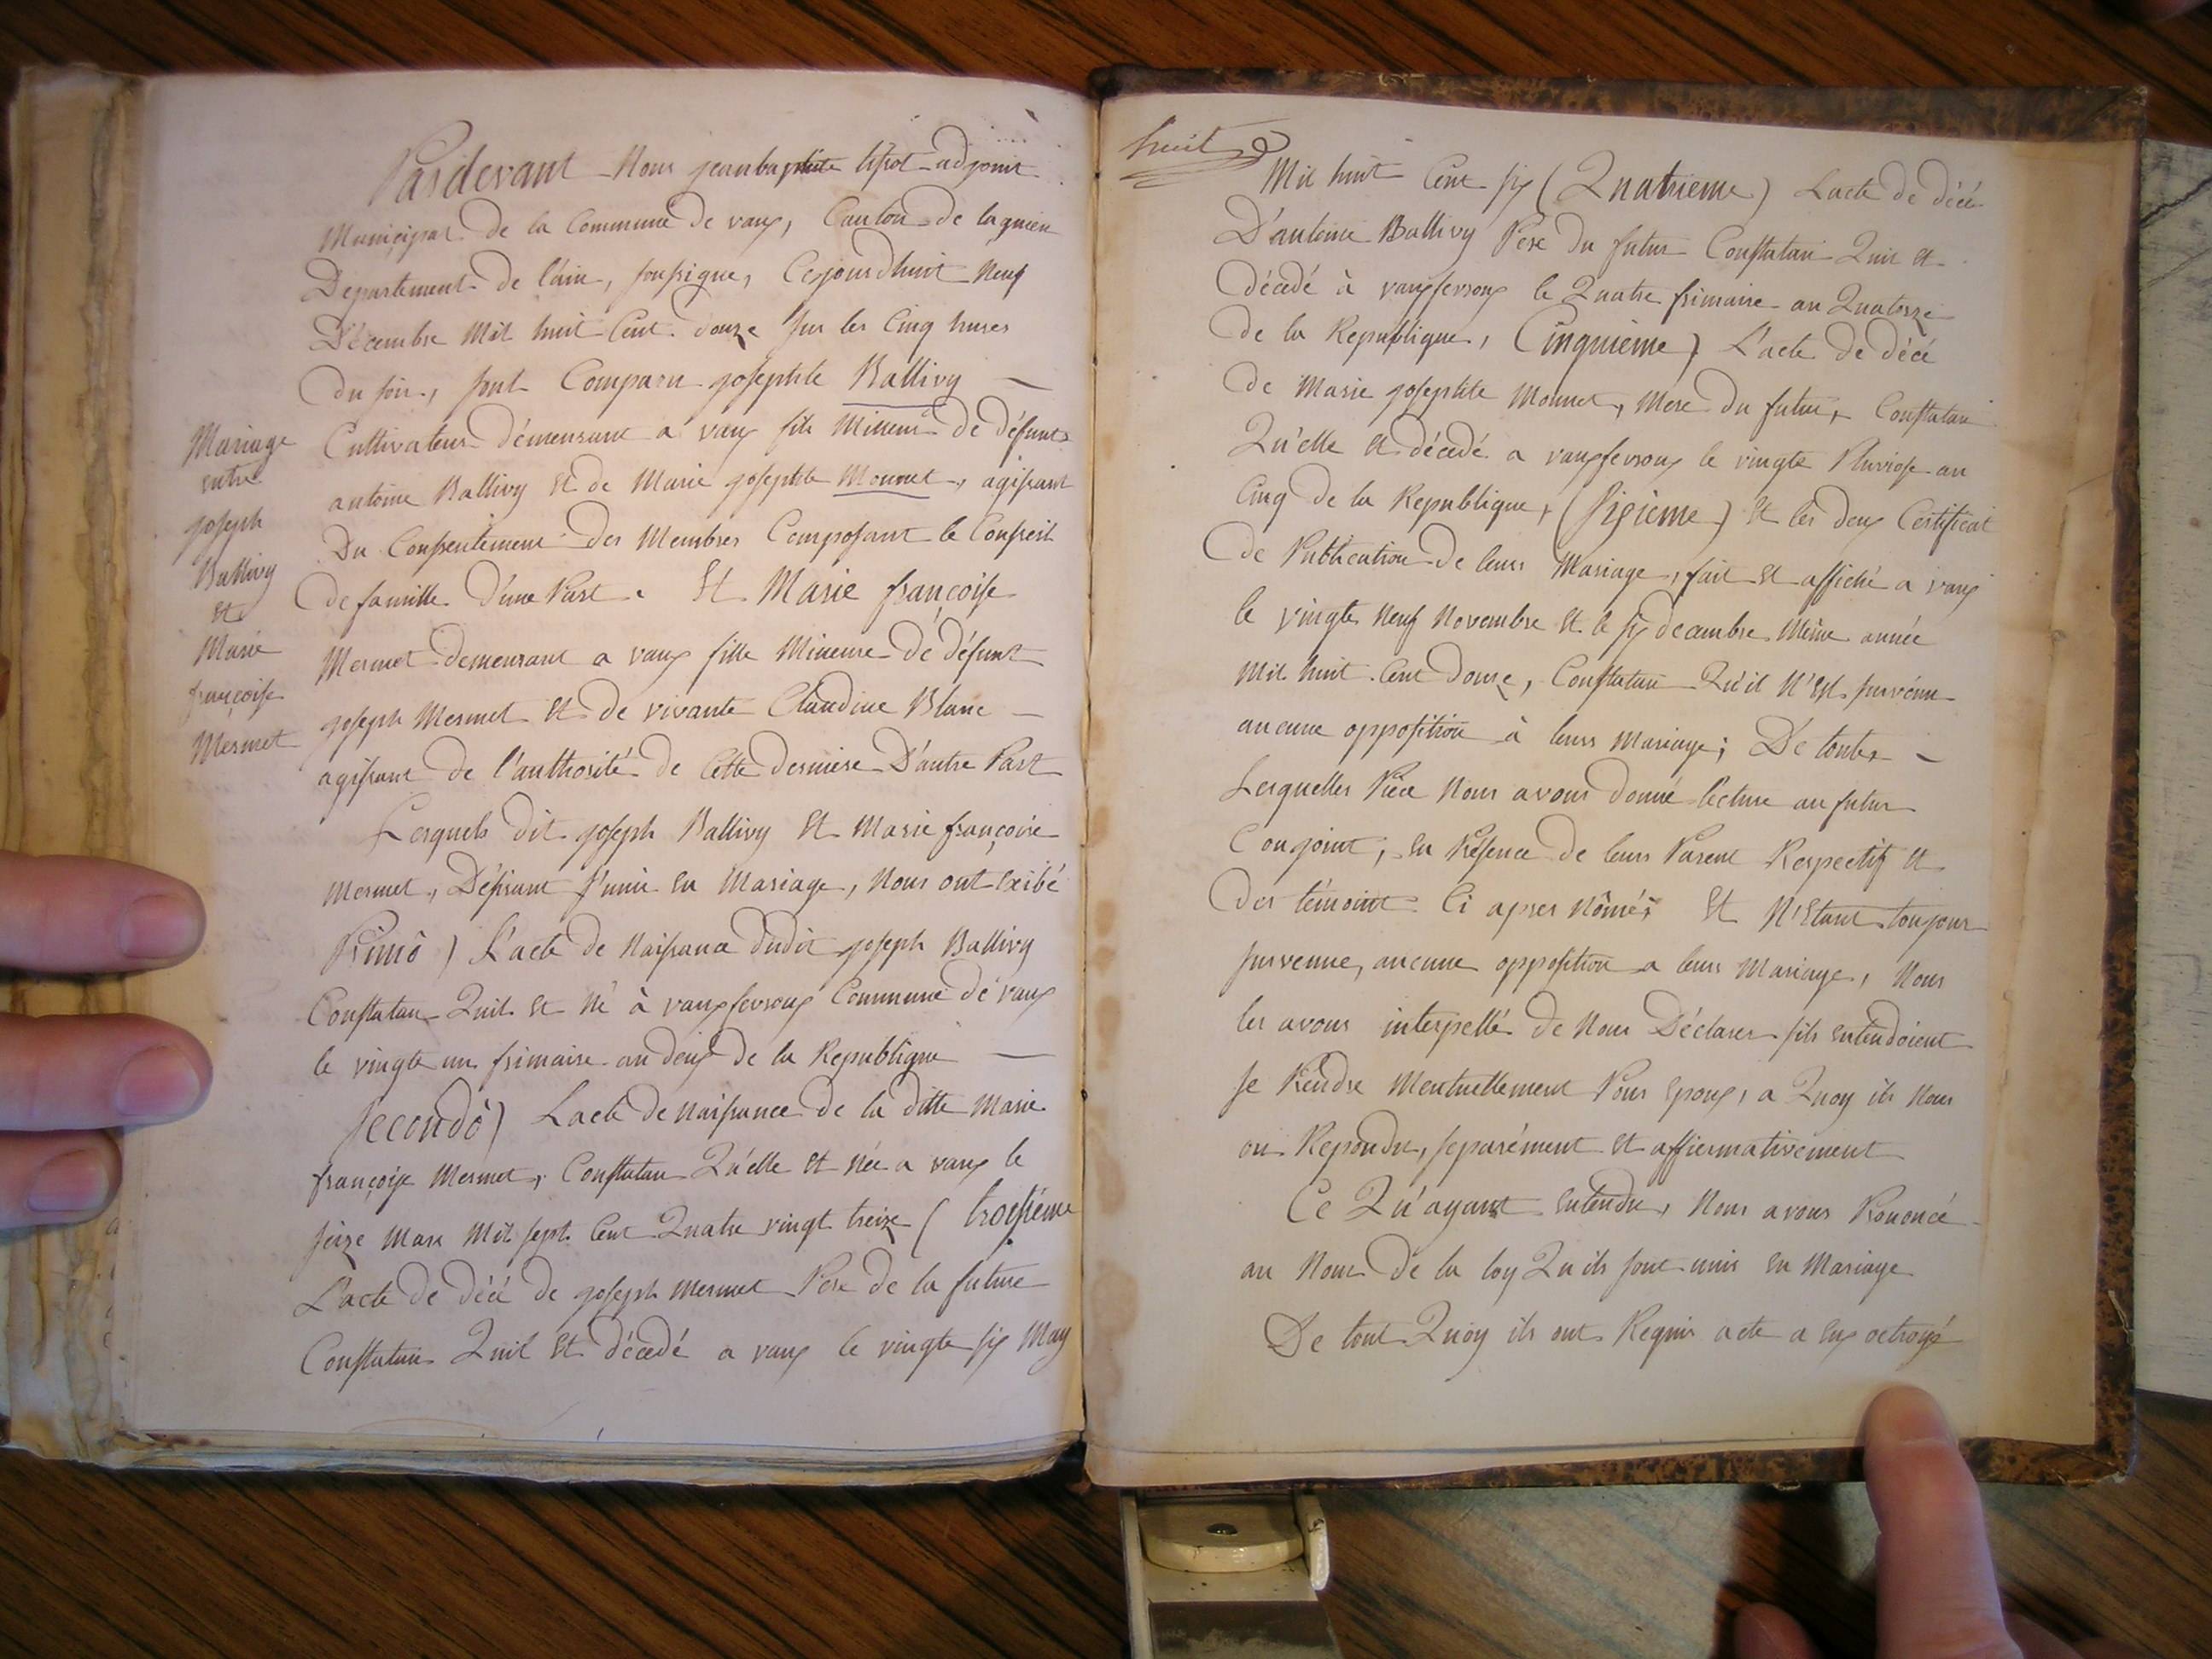 Pardevant Nous jeanbaptiste tissot adjoint
Municipal de la Commune de vaux, Canton de lagnieu
Departement de l'ain, soussigne, Cejourdhuit Neuf
Décembre Mil huit Cent douze sur les Cinq hures
du soir, sont Comparu josephte Ballivy
Cultivateur démeurant a vaux fils Mineur de défunts
antoine Ballivy Et de Marie josephte Monnet, agissant
Du Consentement des Membres Composant le Conseil
de famille D'une Part. Et Marie françoise
Mermet demeurant a vaux fille Mineure de défunt
joseph Mermet Et de vivante Claudine Blanc
agissant de l'authorité de Cette derniere D'autre Part
Mariage
entre
joseph
Ballivy
et
Marie
françoise
Mermet
Lesquels dit joseph Ballivy Et Marie françoise
Mermet, Désirant s'unir En Mariage, Nous ont Exibé
Primô) L'acte de Naissance dudit joseph Ballivy
Constatan Quil Et Né à vauxfevroux Commune de vaux
le vingte un frimaire an deux de la Republique
Secondô) L'acte de Naissance de la ditte Marie
françoise Mermet, Constatan Qu'elle Et Née a vaux le
seize Mars Mil sept Cent Quatre vingt treize ( troisième
L'acte de décé de joseph Mermet Pere de la future
Constatan Quil Et décedé a vaux le vingte six May
huit
Mil huit Cent six (Quatrieme) L'acte de décé
D'antoine Ballivy Pere du futur Constatan Quil Et
décédé à vauxfevroux le Quatre frimaire an Quatorze
de la Republique, Cinquieme) L'acte de décé
de Marie josephte Monnet, Mere du futur, Constatan
Qu'elle Et décédé a vauxfevroux le vingte Pluviose an
Cinq de la Republique, (Sixieme) Et les deux Certificat
de Publication de leurs Mariage, fait Et affiché a vaux
le vingte Neuf Novembre Et le six decembre Même année
Mil huit Cent Douze, Constatan Qu'il N'Est survénu
aucune opposition à leurs Mariage; De toutes
Lesquelles Piece Nous avons donné lecture au futur
Conjoint, En Présence de leurs Parent Respectif Et
des témoint Ci apres Nômés Et N'Etant toujour
survenue, aucune opposition a leurs Mariage, Nous
les avons interpellé de Nous Déclarer sils Entendoient
se Prendre Mentuellement Pour Epoux, a Quoy ils Nous
on Repondu, separément Et affiermativement
Ce Qu'ayant Entendu, Nous avons Prononcé
au Nom de la loy Quils sont unis En Mariage
De tout Quoy ils ont Requis acte a Eux octroyé